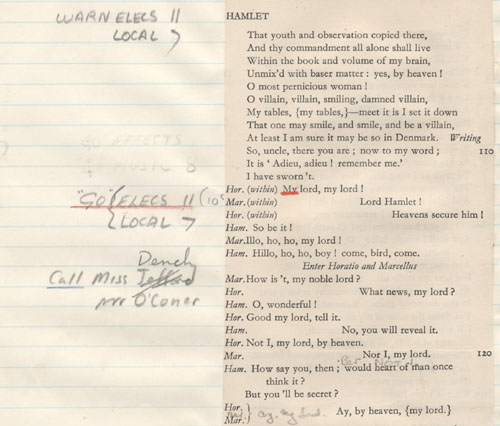 WARN ELECS 11
LOCAL 7
"GO" { ELECS 11 (10s
LOCAL 7
Dench
Call Miss
Mr O'Coner
HAMLET
That youth and observation copied there,
And thy commandment all alone shall live
Within the book and volume of my brain,
Unmix'd with baser matter : yes, by heaven !
O most pernicious woman !
O villain, villain, smiling, damned villain,
My tables, {my tables,}—meet it is I set it down
That one may smile, and smile, and be a villain,
At least I am sure it may be so in Denmark. Writing
So, uncle, there you are ; now to my word ; 110
It is ' Adieu, adieu ! remember me.'
I have sworn't.
Hor. (within) My lord, my lord !
Mar. (within) Lord Hamlet !
Hor. (within) Heavens secure him !
Ham. So be it !
Mar. Illo, ho, ho, my lord !
Ham. Hillo, ho, ho, boy ! come, bird, come.
Enter Horatio and Marcellus
Mar. How is 't, my noble lord ?
Hor. What news, my lord ?
Ham. O, wonderful !
Hor. Good my lord, tell it.
Ham. No, you will reveal it.
Hor. Not I, my lord, by heaven.
Mar. Nor I, my lord. 120
Ham. How say you, then ; would heart of man once
think it ?
But you 'll be secret ?
Hor.
Mar. } Ay, by heaven, {my lord.}
ay, my lord.